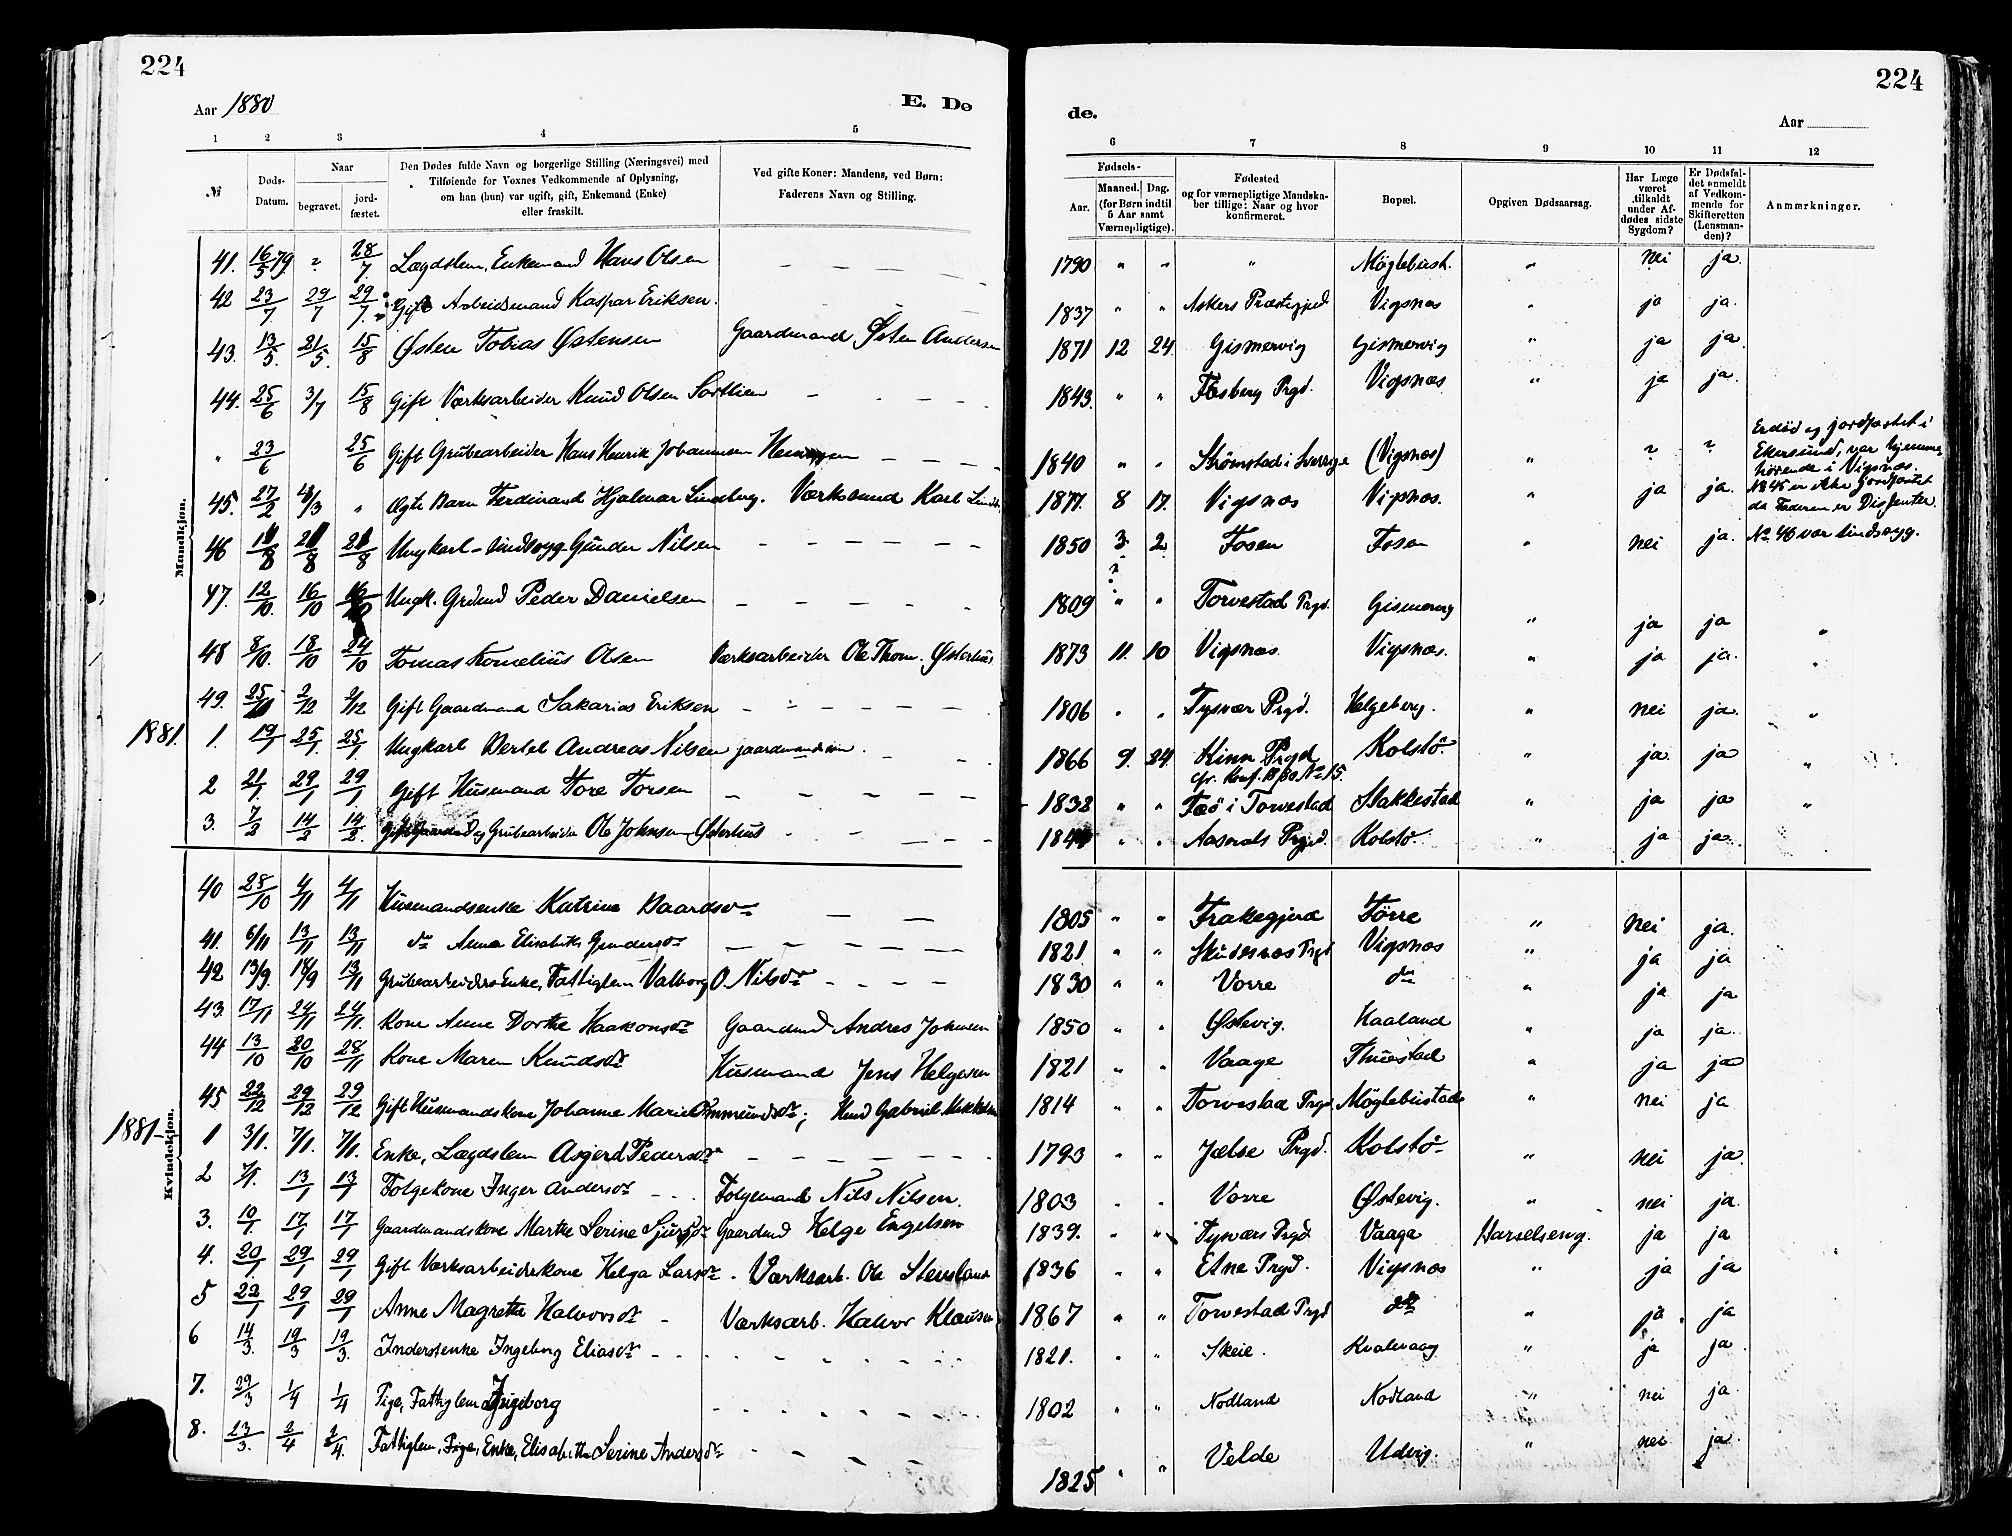 224
224
Aar 1880
E. Døde.
Aar
1 2 3 4 5 6 7 8 9 10 11 12
№
Døds-Datum.
Naar
begravet.
jord-fæstet.
Den Dødes fulde Navn og borgerlige Stilling (Næringsvei) med
Tilføiende for Voxnes Vedkommende af Oplysning,
om han (hun) var ugift, gift, Enkemand (Enke)
eller fraskilt.
Ved gifte Koner: Mandens, ved Børn:
Faderens Navn og Stilling.
Fødsels-
Aar.
Maaned. Dag.
(for Børn indtil
5 Aar samt
Værnepligtige).
Fødested
og for værnepligtige Mandska-
ber tillige: Naar og hvor
konfirmeret.
Bopæl.
Opgiven Dødsaarsag.
Har Læge
været
tilkaldt
under Af-
dødes sidste
Sygdom?
Er Dødsfal-
det anmeldt
af Vedkom-
mende for
Skifteretten
(Lensman-
den)?
Anmærkninger.
Mandkjøn.
41. 16/5 79 " 28/7. Lægdslem, Enkemand Hans Olsen 1790 " " " Møglebust. " nei ja.
42 23/7 29/7 29/7. Gift Arbeidsmand Kaspar Eriksen. 1837 " " Askers Præstegjed Vigsnæs " ja ja.
43. 13/5. 21/5. 15/8 Østen Tobias Østensen Gaardmand Østen Andersen 1871 12 24 Gismervig Gismervig " ja ja.
44. 25/6 3/7 15/8 Gift Værksarbeider Knud Olsen 1843. " " Prgd. Vigsnæs " ja ja.
" 23/6 25/6 Gift Grubearbeider Hans Henrik Johannesen 1840 " " Strømstad i Sverrige (Vigsnæs) " ? ? Er død og jordfæstet i
Ekersund, var hjemme-
hørende i Vigsnæs.
45. 27/2 /3 " Ægte Barn Ferdinand Hjalmar Lindberg. Værksmand Karl Lindb. 1877. 8 17. Vigsnæs Vigsnæs. " ja ja. No 45 er ikke jordfæstet
da Faderen er Dissenter.
46 /8 21/8 21/8 Ungkarl - sindssyg Gunder Nilsen 1850 3 2 Fosen Fosen " nei ja. No. 46 var sindssyg.
47. 12/10. 16/10 16/10 Ungk. Grdmd Peder Danielsen 1809 " " Torvestad Prgd. Gismervig " ja ja "
48 8/10. 18/10 24/10 Tomas Kornelius Olsen Værksarbeider Ole Thom. Østerhus 1873 11. 10 Vigsnæs. Vigsnæs. " ja ja. "
49. 25/ 2/12 2/12 Gift Gaardmand Sakarias Eriksen 1806 " " Tysvær Prgd. Helgeberg. " nei ja. "
1881. 1. 19/1 25/1. 25/1. Ungkarl Bertel Andreas Nilsen gaardmandssøn. 1866 9. 24. Kinn Prgd Kolstø. " ja ja "
cfr. Konf. 1880 No 15.
2 21/1 29/1 29/1 Gift Husmand Tore Torsen 1832 " " Feø i Torvestad Stakkestad " ja ja "
3. 7/2 14/2 14/2. Gift Gaardmd og Grubearbeider Ole Johnsen Østerhus " " Prgd. Kolstø. " ja ja.
Kvindekjøn.
40 28/10 4/11 4/11 Husmandsenke Katrine Baardsdr 1805 " " Frakkegjerd Førre " nei ja.
41. 6/11 13/11 13/11 do Anne Elisabeth Gundersdr 1821. " " Skudesnæs Prgd Vigsnæs " ja ja
42 13/9. 18/9 13/11 Grubearbeiders Enke, Fattiglem Valborg O. Nilsdr 1830 " " Vorre do " ja ja
43. 17/11 24/11 24/11. Kone Anne Dorthe Haakonsdr Gaardmd Andres Johnsen 1850 " " Østevig. Haaland " ja ja.
44 13/10 20/10 28/11 Kone Maren Knudsdr Husmand Jens Helgesen 1821 " " Vaage Thuestad " ja ja
45 22/12 29/12 29/12 Gift Husmandskone Johanne Marie Ommundsdr; 1814 " " Torvestad Prgd. Møglebustad " nei ja
1881 1 3/1. 7/1. 7/1. Enke, Lægdslem Asgerd Pedersdr 1793 " " Jælse Prgd. Kolstø " nei ja.
2 7/1. 13/1 13/1 Følgekone Inger Andersdr Følgemand Nils Nilsen. 1803 " " Vorre Østevig. " nei ja.
3. 10/1 17/1 17/1 Gaardmandskone Marthe Serine Sjursdr Gaardmd Helge Engelsen 1839. " " Tysvær Prgd Vaaga Barselseng. ja ja
4. 20/1 29/1 29/1 Gift Værksarbeiderskone Helga Larsdr. Værksarb. Ole Stensland 1836 " " Etne Prgd. Vigsnæs " ja ja
5 22/1 29/1 29/1 Anne Magrethe Halvorsdr Værksarb. Halvor Klausen 1867 " " Torvestad Prgd do " ja. ja
6 14/3. 19/3 19/3. Inderstenke Ingeborg Eliasdr 1821. " " Skeie. Kvalevaag " ja ja.
7. 29/3 1/4 1/4 Pige, Fattiglem Ingeborg 1802 " " Nodland Nodland " nei ja.
8. 23/3. 2/4 2/4. Fattiglem, Pige, Enke, Elisabeth Serine Andersdr 1825 " " Velde Udvig. " nei ja